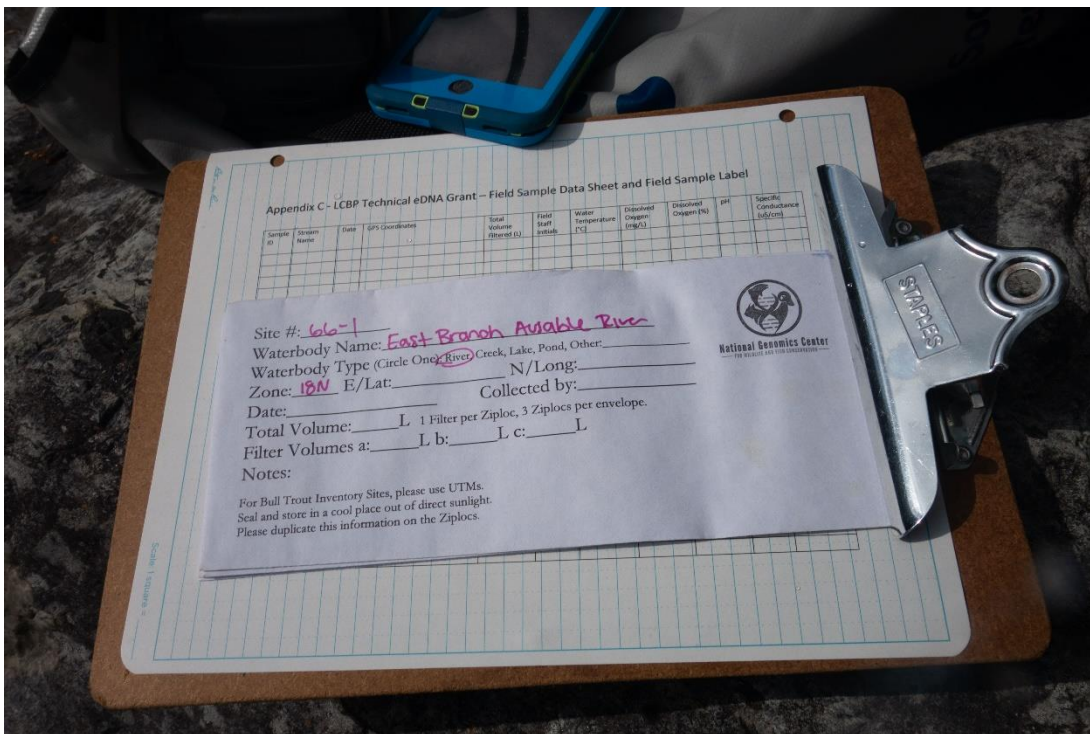 Appendix C - LCBP Technical eDNA Grant – Field Sample Data Sheet and Field Sample Label
Sample ID
Stream Name
Date
GPS Coordinates
Total Volume Filtered (L)
Field Staff Initials
Water Temperature (°C)
Dissolved Oxygen (mg/L)
Dissolved Oxygen (%)
pH
Specific Conductance (uS/cm)
STAPLES
National Genomics Center
FOR WILDLIFE AND FISH CONSERVATION
Site #: 66-1
Waterbody Name: East Branch Ausable River
Waterbody Type (Circle One): River, Creek, Lake, Pond, Other:
Zone: 18N E/Lat: N/Long:
Date: Collected by:
Total Volume: L 1 Filter per Ziploc, 3 Ziplocs per envelope.
Filter Volumes a: L b: L c: L
Notes:
For Bull Trout Inventory Sites, please use UTMs.
Seal and store in a cool place out of direct sunlight.
Please duplicate this information on the Ziplocs.
Scale 1 square =